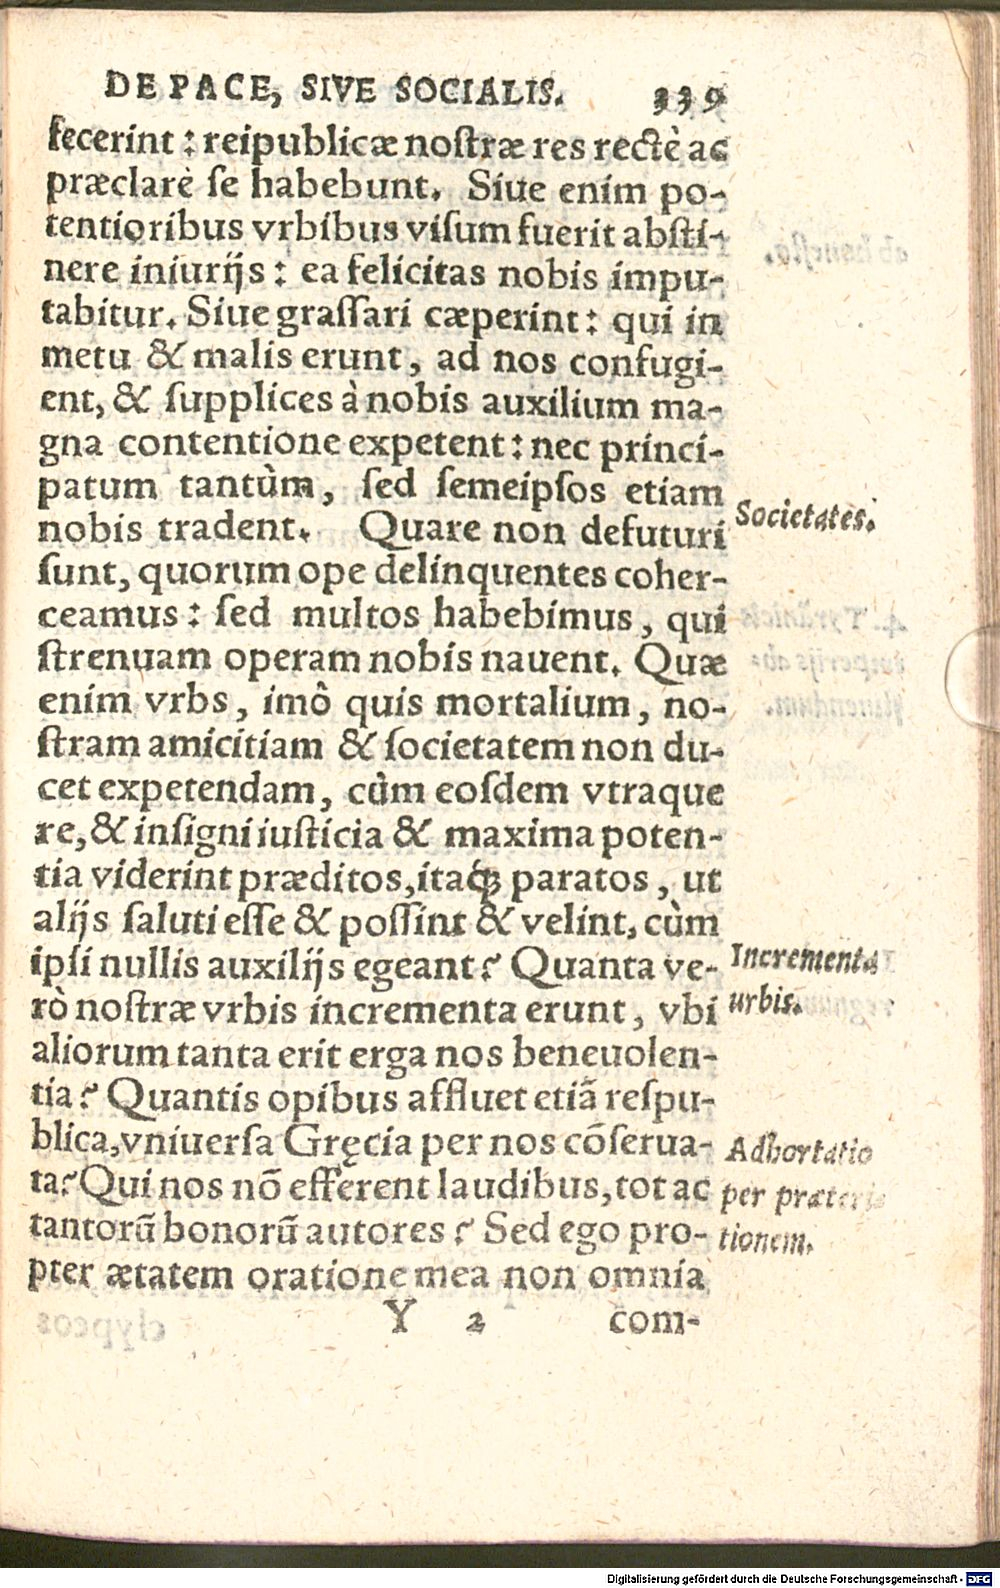 DE PACE, SIVE SOCIALIS. 339
fecerint: reipublicæ nostræ res rectè ac
præclarè se habebunt. Siue enim po-
tentioribus vrbibus visum fuerit absti-
nere iniurijs: ea felicitas nobis impu-
tabitur. Siue grassari cæperint: qui in
metu & malis erunt, ad nos confugi-
ent, & supplices à nobis auxilium ma-
gna contentione expetent: nec princi-
patum tantùm, sed semeipsos etiam
nobis tradent. Quare non defuturi
Societates.
sunt, quorum ope delinquentes coher-
ceamus: sed multos habebimus, qui
strenuam operam nobis nauent. Quæ
enim vrbs, imò quis mortalium, no-
stram amicitiam & societatem non du-
cet expetendam, cùm eosdem vtraque
re, & insigni iusticia & maxima poten-
tia viderint præditos, itaq́; paratos, ut
alijs saluti esse & possint & velint, cùm
ipsi nullis auxilijs egeant? Quanta ve-
Incrementa
rò nostræ vrbis incrementa erunt, vbi
urbis.
aliorum tanta erit erga nos beneuolen-
tia? Quantis opibus affluet etiã respu-
blica, vniuersa Gręcia per nos cõserua-
Adhortatio
ta? Qui nos nõ efferent laudibus, tot ac
per præteri-
tantorũ bonorũ autores? Sed ego pro-
tionem.
pter ætatem oratione mea non omnia
Y 2 com-
Digitalisierung gefördert durch die Deutsche Forschungsgemeinschaft - DFG